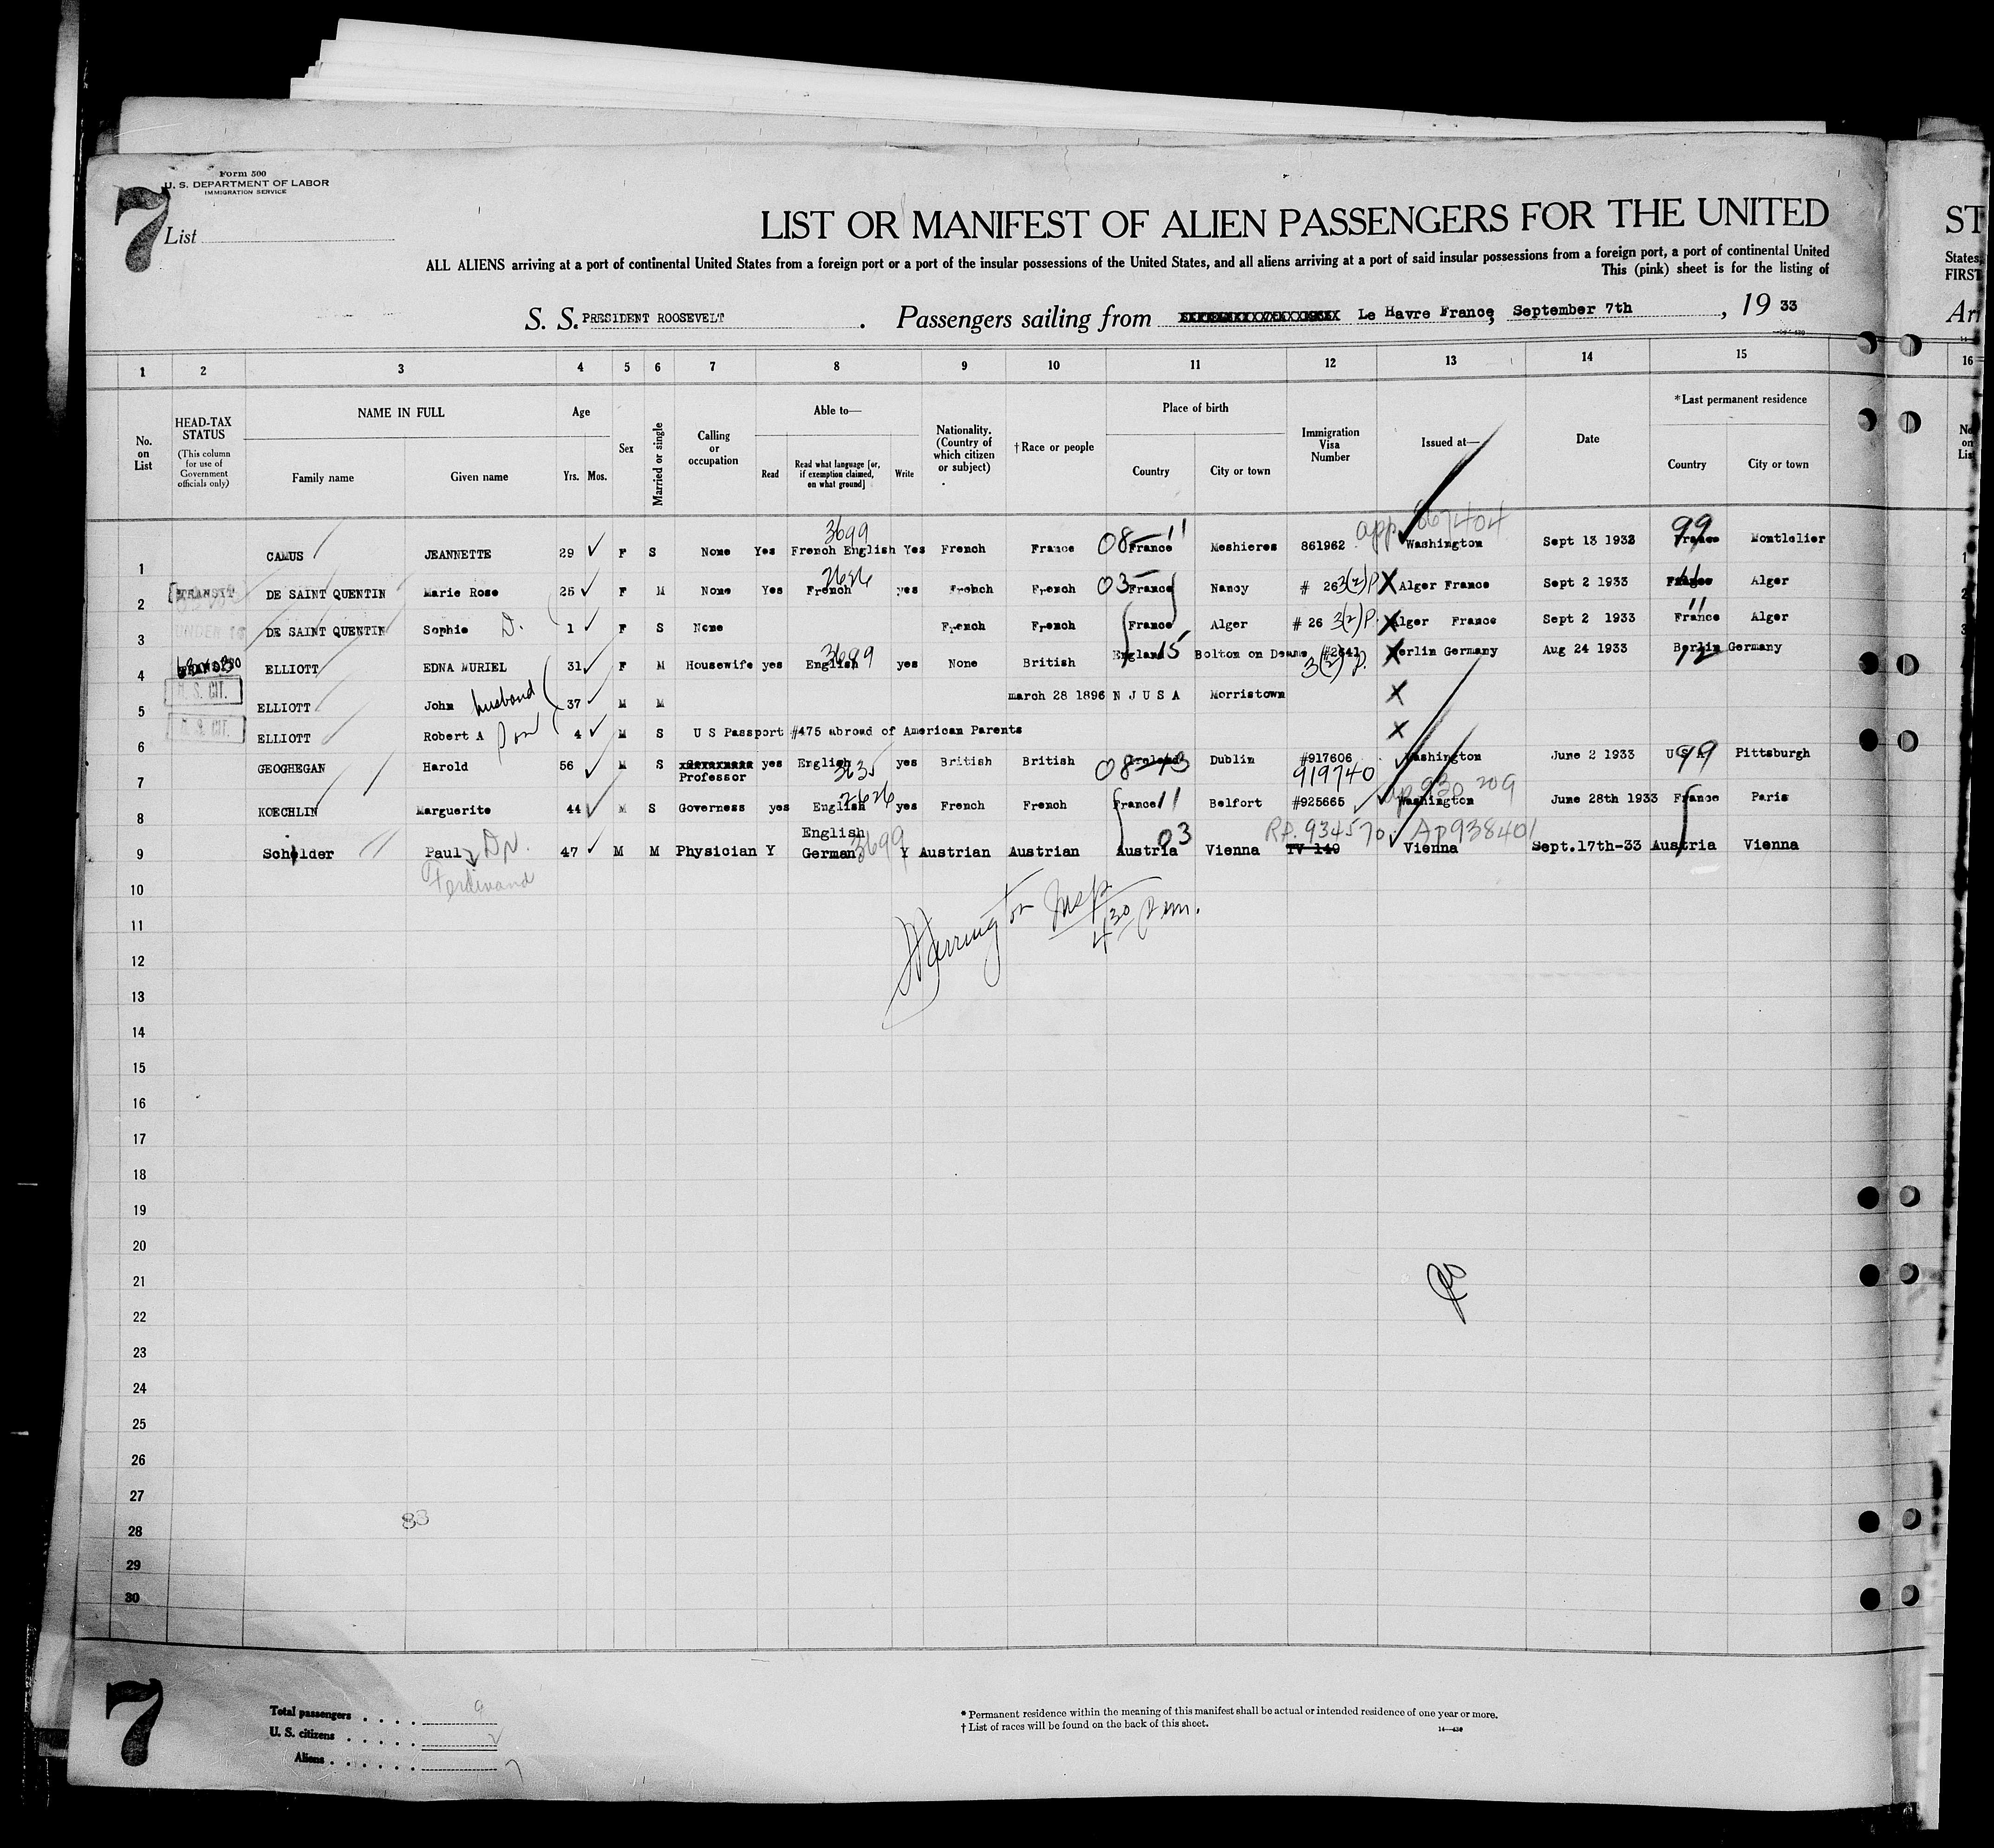 Form 500
U. S. DEPARTMENT OF LABOR
IMMIGRATION SERVICE
7
List
LIST OR MANIFEST OF ALIEN PASSENGERS FOR THE UNITED
ST
ALL ALIENS arriving at a port of continental United States from a foreign port or a port of the insular possessions of the United States, and all aliens arriving at a port of said insular possessions from a foreign port, a port of continental United
States,
This (pink) sheet is for the listing of
FIRST
S. S. PRESIDENT ROOSEVELT. Passengers sailing from Le Havre France, September 7th, 19 33
Arr
1 2 3 4 5 6 7 8 9 10 11 12 13 14 15 16
No. on List
HEAD-TAX STATUS
(This column for use of Government officials only)
NAME IN FULL
Family name
Given name
Age
Yrs. Mos.
Sex
Married or single
Calling or occupation
Able to—
Read
Read what language [or, if exemption claimed, on what ground]
Write
Nationality. (Country of which citizen or subject)
†Race or people
Place of birth
Country
City or town
Immigration Visa Number
Issued at—
Date
*Last permanent residence
Country
City or town
3699 app 99
1 CAMUS JEANNETTE 29 F S None Yes French English Yes French France 08 France 11 Meshieres 861962 Washington Sept 13 1933 France Montlelier
2626
2 TRANSIT DE SAINT QUENTIN Marie Rose 25 F M None Yes French yes French French 03 France Nancy # 26 3(2)P. X Alger France Sept 2 1933 France Alger
3 UNDER 16 DE SAINT QUENTIN Sophie D. 1 F S None French French France Alger # 26 3(2)P. X Alger France Sept 2 1933 France 11 Alger
4 ELLIOTT EDNA MURIEL 31 F M Housewife yes English 3699 yes None British England 15 Bolton on Deane #2641 3(2) P. X Berlin Germany Aug 24 1933 Berlin Germany 12
5 U. S. CIT. ELLIOTT John husband 37 M M march 28 1896 N J U S A Morristown X
6 U. S. CIT. ELLIOTT Robert A son 4 M S U S Passport #475 abroad of American Parents X
7 GEOGHEGAN Harold 56 M S Professor yes English 3635 yes British British 08 Ireland 13 Dublin #917606 919740 Washington June 2 1933 U S A 99 Pittsburgh
8 KOECHLIN Marguerite 44 M S Governess yes English 2626 yes French French France 11 Belfort #925665 Washington ap 930 209 June 28th 1933 France Paris
English 3699 03 Rp. 934570 Ap 938401
9 Scholder Paul Dr. 47 M M Physician Y German Y Austrian Austrian Austria Vienna TV 149 Vienna Sept.17th-33 Austria Vienna
Ferdinand
10
Harrington Insp
4 30 p m.
11
12
13
14
15
16
17
18
19
20
21
22
23
24
25
26
27
83
28
29
30
7
Total passengers . . . . 9
U. S. citizens . . . . . 2
Aliens . . . . . . 7
* Permanent residence within the meaning of this manifest shall be actual or intended residence of one year or more.
† List of races will be found on the back of this sheet.
14—430